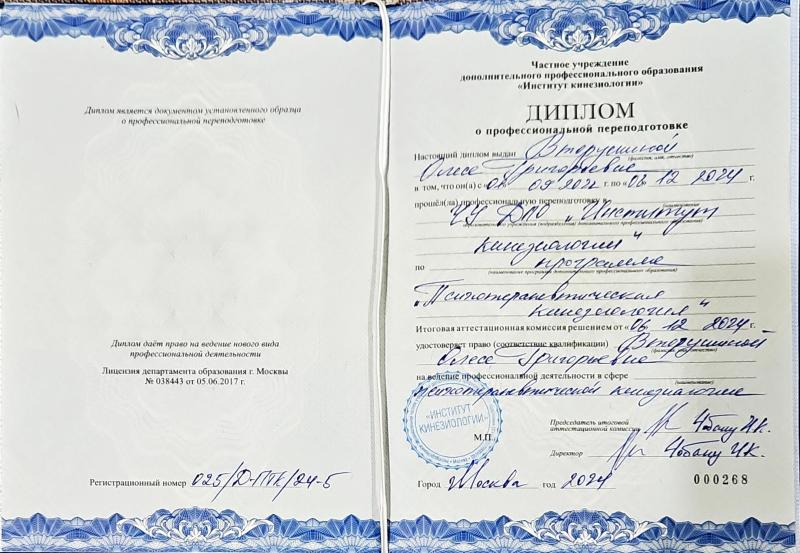 Диплом является документом установленного образца
о профессиональной переподготовке
Диплом даёт право на ведение нового вида
профессиональной деятельности
Лицензия департамента образования г. Москвы
№ 038443 от 05.06.2017 г.
Регистрационный номер 025/Д-ПТК/24-Б
Частное учреждение
дополнительного профессионального образования
«Институт кинезиологии»
ДИПЛОМ
о профессиональной переподготовке
Настоящий диплом выдан Вторушиной
(фамилия, имя, отчество)
Олесе Григорьевне
в том, что он(а) с «01» 09 2022 г. по «06» 12 2024 г.
прошёл(ла) профессиональную переподготовку в
(наименование
ЧУ ДПО „Институт
образовательного учреждения (подразделения) дополнительного профессионального образования)
кинезиологии"
по программе
(наименование программы дополнительного профессионального образования)
„Психотерапевтическая
кинезиология"
Итоговая аттестационная комиссия решением от «06» 12 2024 г.
удостоверяет право (соответствие квалификации) Вторушиной
(фамилия, имя, отчество)
Олесе Григорьевне
на ведение профессиональной деятельности в сфере
(наименование)
психотерапевтической кинезиологии
Председатель итоговой
аттестационной комиссии Чобану И.К.
«ИНСТИТУТ
КИНЕЗИОЛОГИИ»
М.П.
Директор Чобану И.К.
Город Москва год 2024
000268